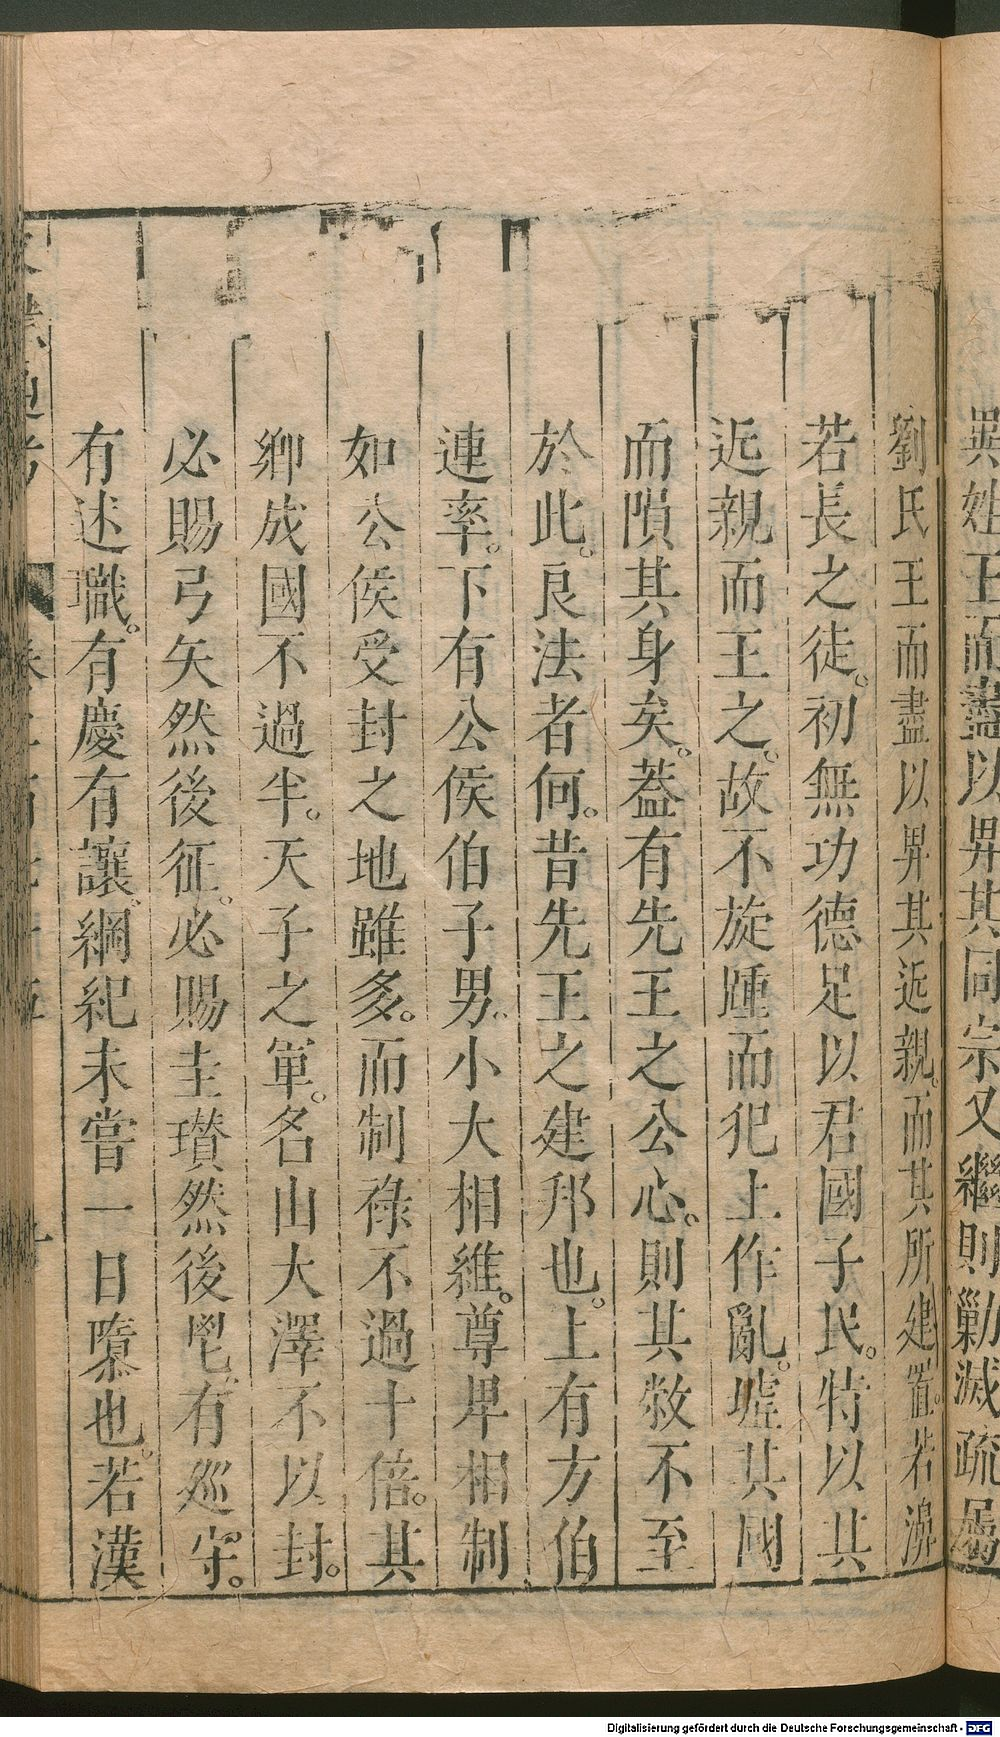 異姓王而盡以畀其同宗又繼則勦滅疏屬
劉氏王而盡以畀其近親。而其所建置。若濞
若長之徒。初無功德足以君國子民。特以其
近親而王之。故不旋踵而犯上作亂。墟其國
而隕其身矣。蓋有先王之公心。則其敝不至
於此。良法者何。昔先王之建邦也。上有方伯
連率。下有公侯伯子男。小大相維。尊卑相制
如公侯受封之地雖多。而制祿不過十倍。其
卿成國不過半。天子之軍。名山大澤不以封。
必賜弓矢然後征。必賜圭瓚然後鬯。有巡守。
有述職。有慶有讓。綱紀未嘗一日隳也。若漢
Digitalisierung gefördert durch die Deutsche Forschungsgemeinschaft - DFG